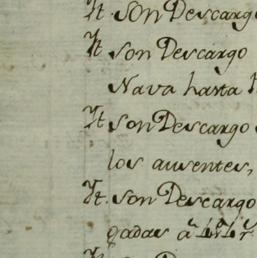 It son Descargo
It son Descargo
Nava hasta
It son Descargo
los ausentes,
It. son Descargo
gadas a